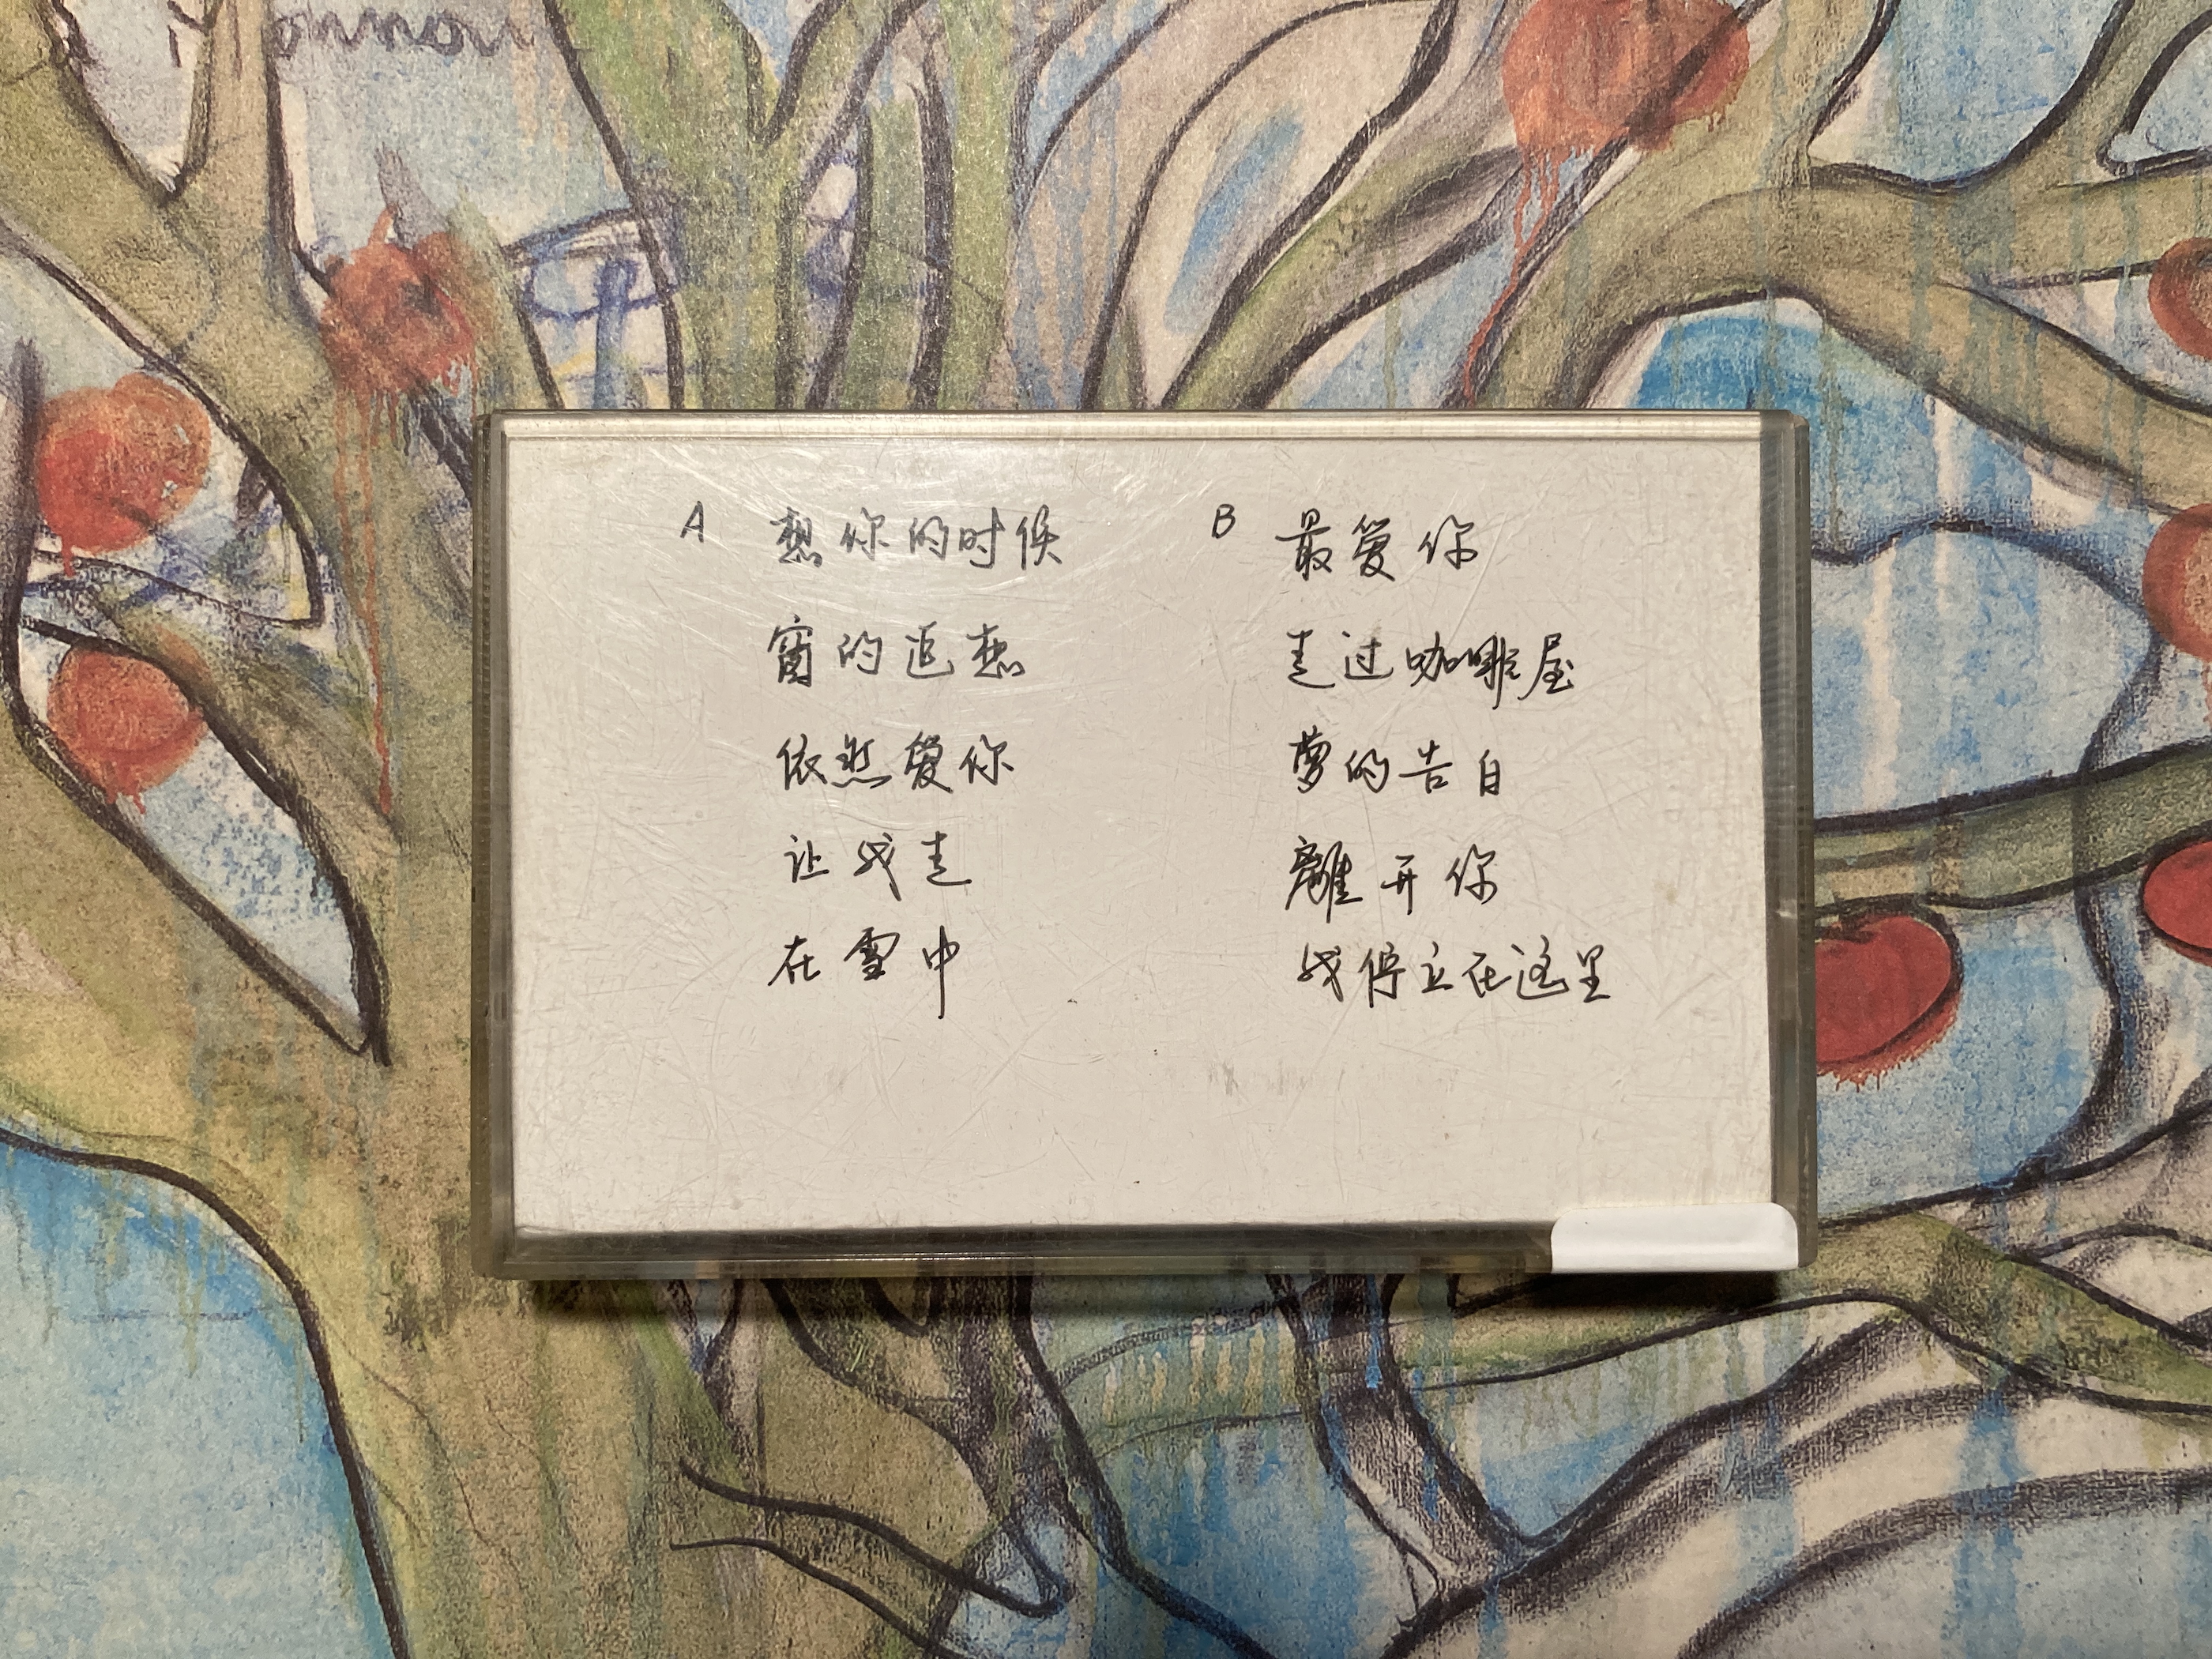 A
想你的时候
窗的追想
依然爱你
让我走
在雪中
B
最爱你
走过咖啡屋
夢的告白
離开你
我停立在这里